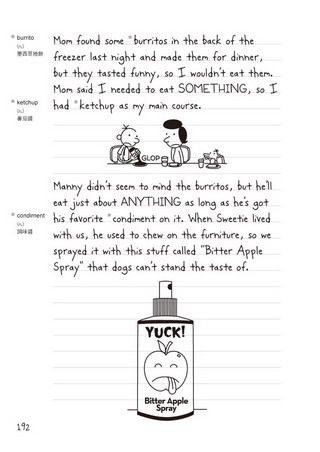 * burrito
(n.)
墨西哥捲餅
* ketchup
(n.)
番茄醬
* condiment
(n.)
調味醬
Mom found some *burritos in the back of the
freezer last night and made them for dinner,
but they tasted funny, so I wouldn't eat them.
Mom said I needed to eat SOMETHING, so I
had *ketchup as my main course.
GLOP
Manny didn't seem to mind the burritos, but he'll
eat just about ANYTHING as long as he's got
his favorite *condiment on it. When Sweetie lived
with us, he used to chew on the furniture, so we
sprayed it with this stuff called "Bitter Apple
Spray" that dogs can't stand the taste of.
YUCK!
Bitter Apple
Spray
192